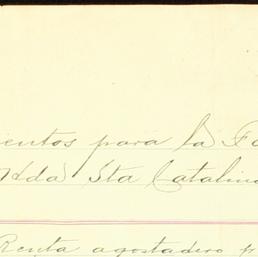 ientos para la Fa
Hda Sta Catalina
Renta agostadero p